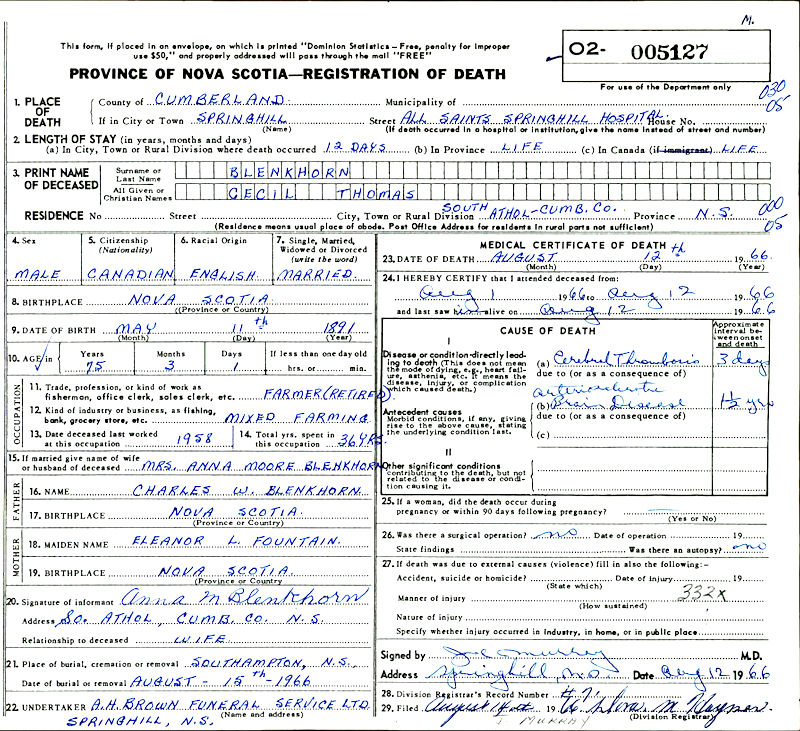 M.
This form, if placed in an envelope, on which is printed "Dominion Statistics - Free, penalty for improper
use $50," and properly addressed will pass through the mail "FREE"
O2- 005127
PROVINCE OF NOVA SCOTIA—REGISTRATION OF DEATH
For use of the Department only
030
05
1. PLACE OF DEATH
County of CUMBERLAND Municipality of
If in City or Town SPRINGHILL Street ALL SAINTS SPRINGHILL HOSPITAL. House No.
(Name) (If death occurred in a hospital or institution, give the name instead of street and number)
2. LENGTH OF STAY (in years, months and days)
(a) In City, Town or Rural Division where death occurred 12 DAYS (b) In Province LIFE (c) In Canada (if immigrant) LIFE
3. PRINT NAME OF DECEASED
Surname or Last Name BLENKHORN
All Given or Christian Names CECIL THOMAS
RESIDENCE No Street City, Town or Rural Division SOUTH ATHOL-CUMB. CO. Province N.S.
000
05
(Residence means usual place of abode. Post Office Address for residents in rural parts not sufficient)
4. Sex
MALE
5. Citizenship (Nationality)
CANADIAN
6. Racial Origin
ENGLISH
7. Single, Married, Widowed or Divorced (write the word)
MARRIED.
8. BIRTHPLACE NOVA SCOTIA
(Province or Country)
9. DATE OF BIRTH MAY 11th 1891
(Month) (Day) (Year)
10. AGE in
Years Months Days If less than one day old
75 3 1 hrs. or min.
OCCUPATION
11. Trade, profession, or kind of work as
fishermon, office clerk, sales clerk, etc. FARMER (RETIRED)
12. Kind of industry or business, as fishing,
bank, grocery store, etc. MIXED FARMING
13. Date deceased last worked at this occupation 1958
14. Total yrs. spent in this occupation 36 YRS.
15. If married give name of wife
or husband of deceased MRS. ANNA MOORE BLENKHORN
FATHER
16. NAME CHARLES W. BLENKHORN.
17. BIRTHPLACE NOVA SCOTIA.
(Province or Country)
MOTHER
18. MAIDEN NAME ELEANOR L. FOUNTAIN.
19. BIRTHPLACE NOVA SCOTIA.
(Province or Country)
20. Signature of informant Anna M Blenkhorn
Address So. ATHOL, CUMB. CO. N.S.
Relationship to deceased WIFE
21. Place of burial, cremation or removal SOUTHAMPTON, N.S.
Date of burial or removal AUGUST - 15th - 1966
22. UNDERTAKER A.H. BROWN FUNERAL SERVICE LTD.
(Name and address)
SPRINGHILL, N.S.
MEDICAL CERTIFICATE OF DEATH
23. DATE OF DEATH AUGUST 12th 1966.
(Month) (Day) (Year)
24. I HEREBY CERTIFY that I attended deceased from:
Aug 1 1966 to Aug 12 1966
and last saw him alive on Aug 12 1966
CAUSE OF DEATH
Approximate interval between onset and death
I
Disease or condition directly leading to death (This does not mean
the mode of dying, e.g., heart failure, asthenia, etc. It means the
disease, injury, or complication
which caused death.)
(a) Cerebral Thrombosis 3 days
due to (or as a consequence of)
Arteriosclerotic
(b) Brain Disease 1½ yrs
due to (or as a consequence of)
(c)
Antecedent causes
Morbid conditions, if any, giving
rise to the above cause, stating
the underlying condition last.
II
Other significant conditions
contributing to the death, but not
related to the disease or condition
causing it.
25. If a woman, did the death occur during
pregnancy or within 90 days following pregnancy?
(Yes or No)
26. Was there a surgical operation? no Date of operation 19
State findings Was there an autopsy? no
27. If death was due to external causes (violence) fill in also the following:-
Accident, suicide or homicide? Date of injury 19
(State which)
Manner of injury 332X
(How sustained)
Nature of injury
Specify whether injury occurred in industry, in home, or in public place
Signed by Murray M.D.
Address Springhill, N.S. Date Aug 12 1966
28. Division Registrar's Record Number
29. Filed August 19
(Division Registrar)
MURRAY